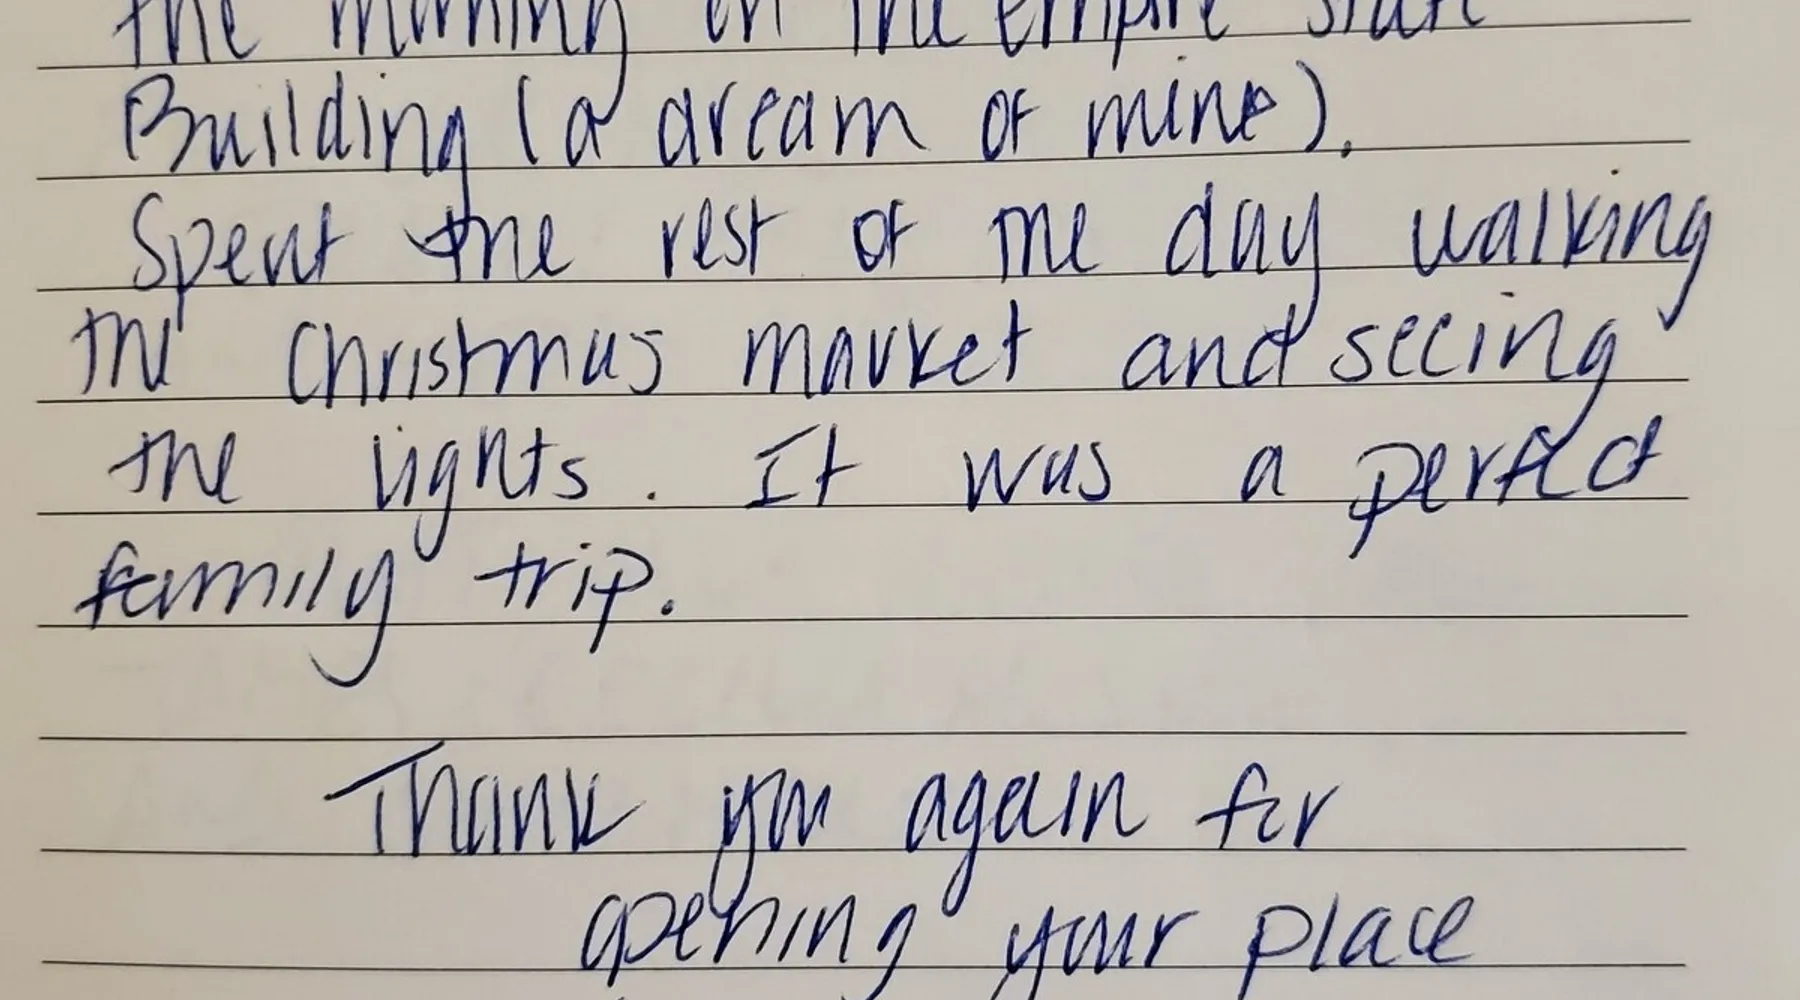 the morning on the empire state
Building (a dream of mine).
Spent the rest of the day walking
the Christmas market and seeing
the lights. It was a perfect
family trip.
Thank you again for
opening your place